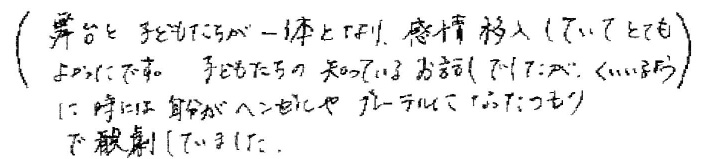 (舞台と子どもたちが一体となり、感情移入していてとても
よかったです。子どもたちの知っているお話しでしたが、くいいるよう)
に時には自分がヘンゼルやグレーテルになったつもり
で観劇していました.